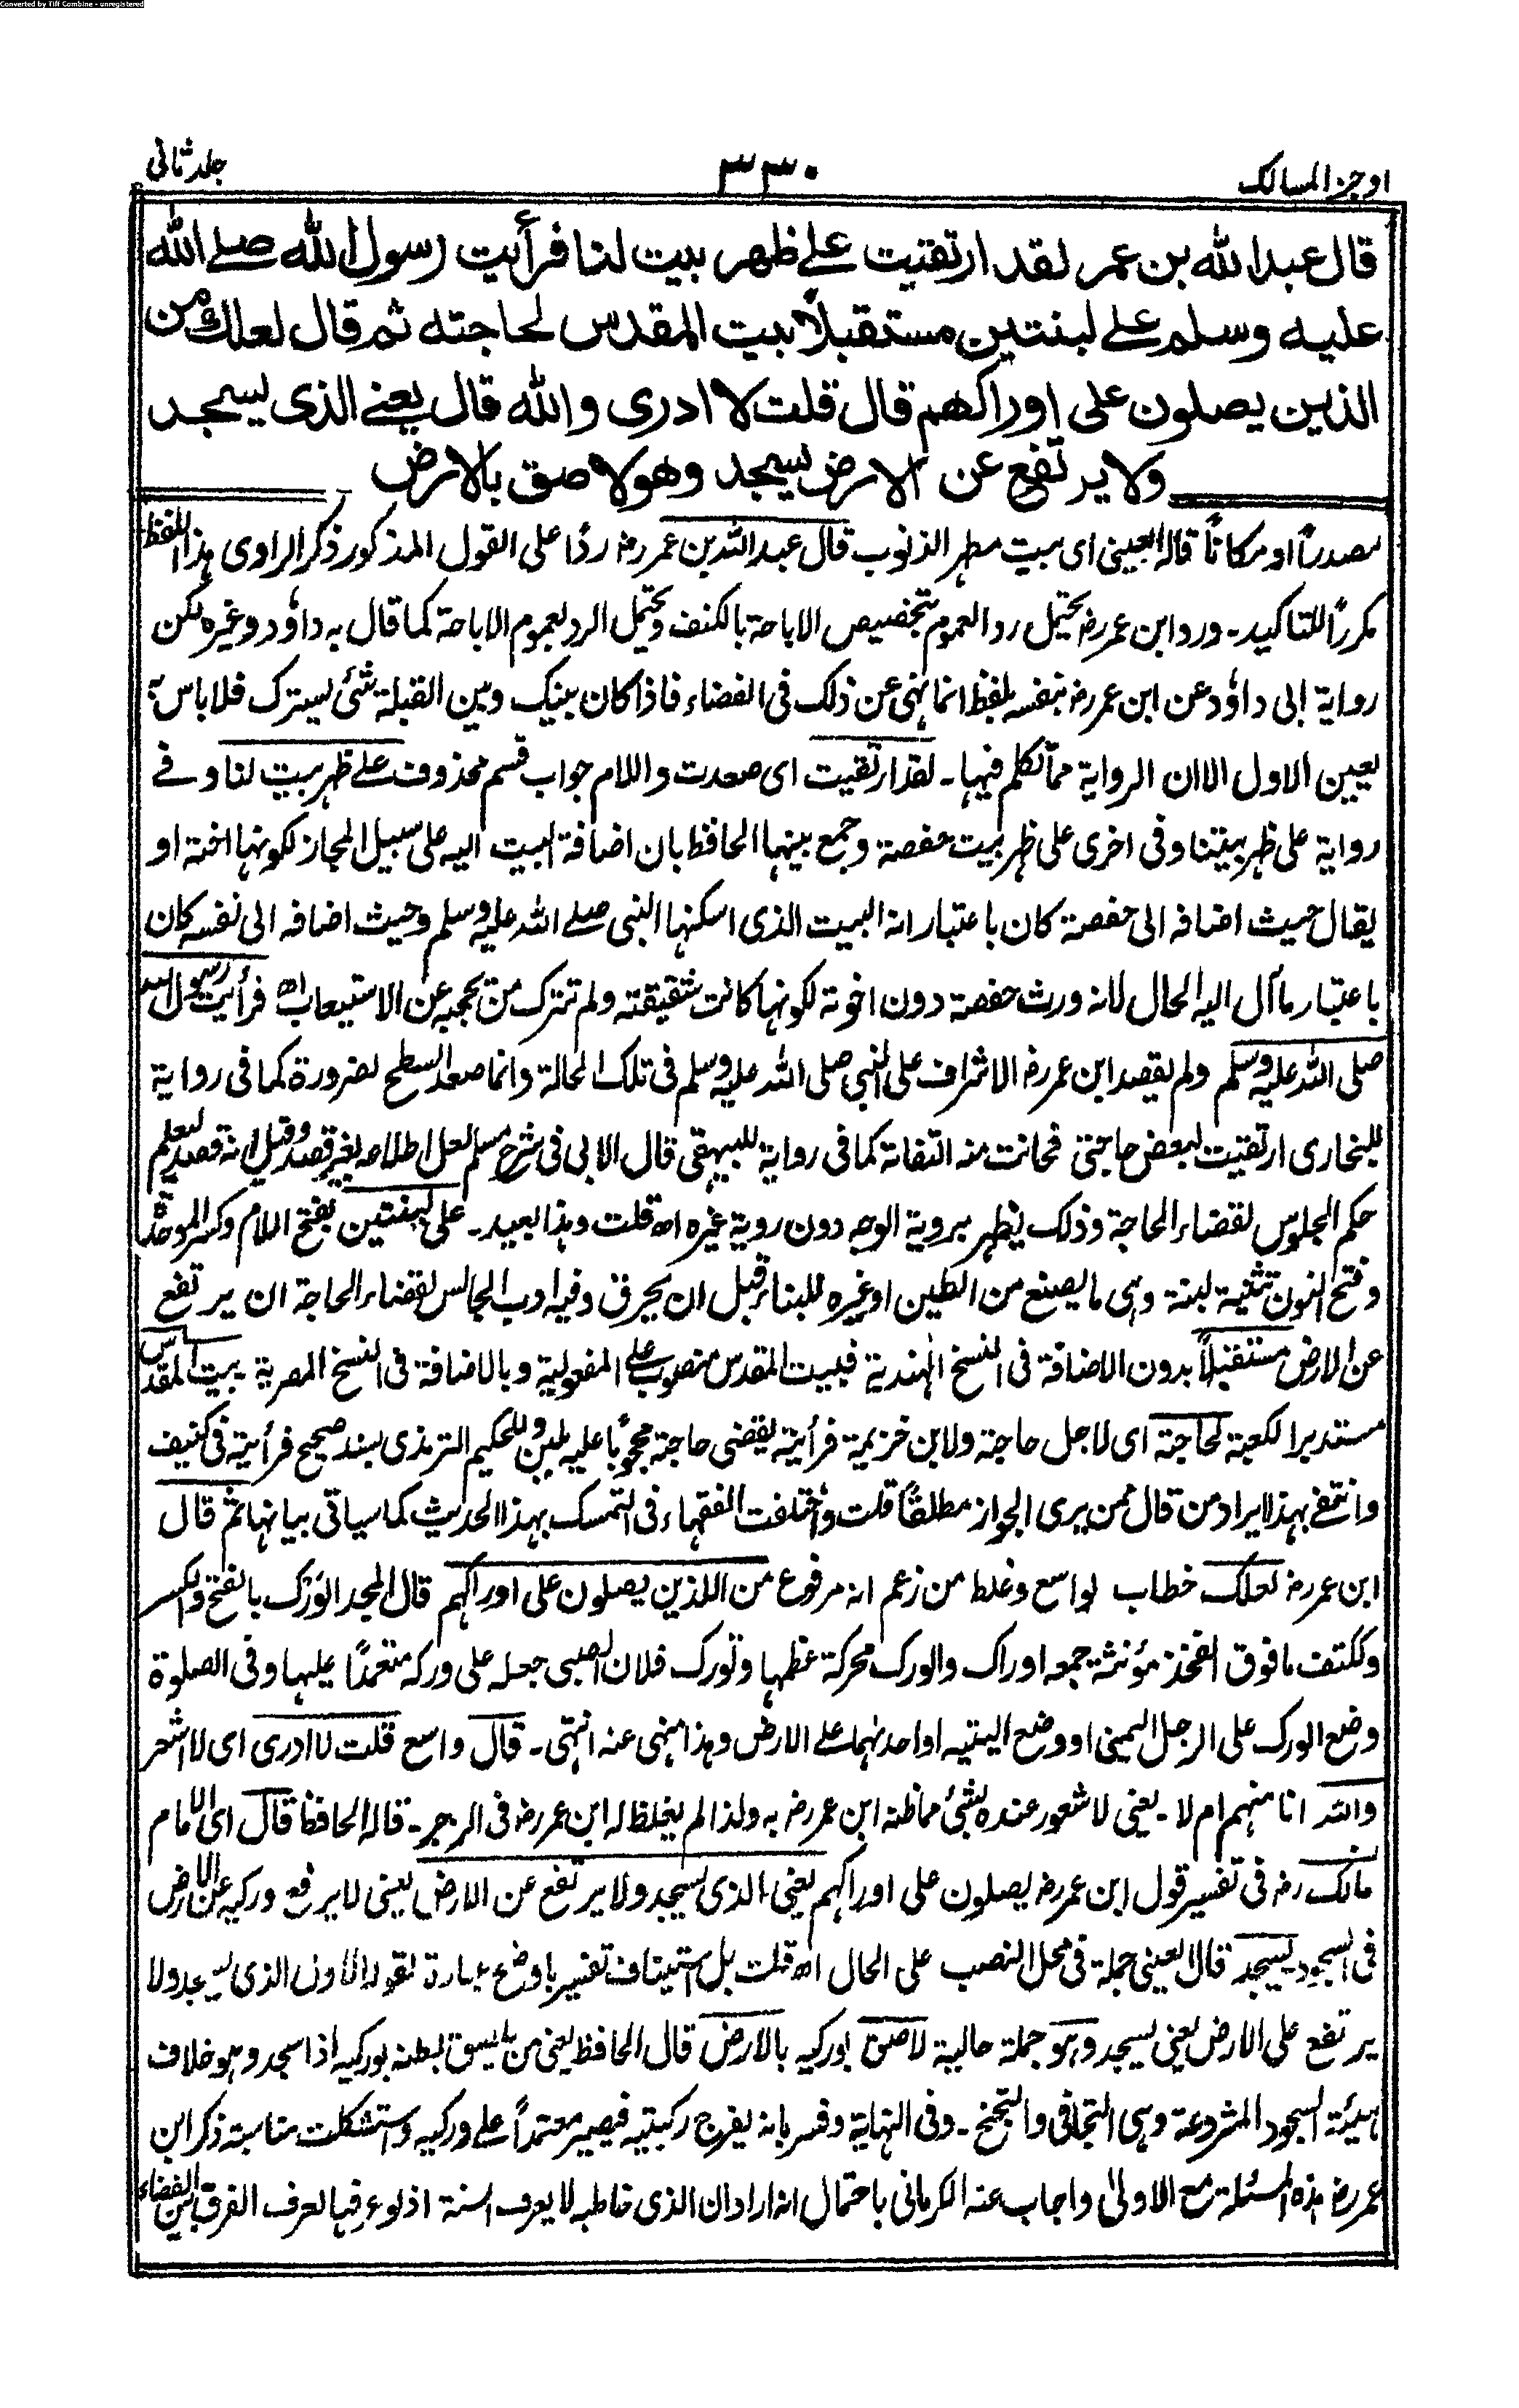 Converted by Tiff Combine - unregistered
اوجز المسالك
٣٣٠
جلد ثانی
قال عبد الله بن عمر لقد ارتقيت علے ظهر بيت لنا فرأيت رسول الله صلے الله
عليه وسلم علے لبنتين مستقبلاً بيت المقدس لحاجته ثم قال لعلك من
الذين يصلون على اوراكهم قال قلت لا ادرى والله قال يعنے الذى يسجد
ولا يرتفع عن الارض يسجد وهو لاصق بالارض
مصدراً او مكاناً قاله العينى اى بيت مطهر الذنوب قال عبد الله بن عمر رض رداً على القول المذكور ذكر الراوى هذا اللفظ
مكرراً للتاكيد۔ ورد ابن عمر رض يحتمل رد العموم بتخصيص الاباحة بالكنف ويحتمل الرد لعموم الاباحة كما قال به داؤد وغيره لكن
رواية ابى داؤد عن ابن عمر رض بنفسه بلفظ انما نهى عن ذلك فى الفضاء فاذا كان بينك وبين القبلة شئ يسترك فلا باس به
يعين الاول الا ان الرواية مما تكلم فيها۔ لقد ارتقيت اى صعدت واللام جواب قسم محذوف علے ظهر بيت لنا وفے
رواية على ظهر بيتنا وفى اخرى على ظهر بيت حفصة وجمع بينها الحافظ بان اضافة البيت اليه على سبيل المجاز لكونها اخته او
يقال حيث اضافه الى حفصة كان باعتبار انه البيت الذى اسكنها النبى صلے الله عليه وسلم وحيث اضافه الى نفسه كان
باعتبار ما آل اليه الحال لانه ورث حفصة دون اخوته لكونها كانت شقيقته ولم تترك من يحجبه عن الاستيعاب اھ فرأيت رسول الله
صلى الله عليه وسلم ولم يقصد ابن عمر رض الاشراف على النبى صلى الله عليه وسلم فى تلك الحالة وانما صعد السطح لضرورة كما فى رواية
للبخارى ارتقيت لبعض حاجتى فحانت منه التفاتة كما فى رواية للبيهقى قال الابى فى شرح مسلم لعل اطلاعه بغير قصد وقيل انه قصد ليعلم
حكم الجلوس لقضاء الحاجة وذلك يظهر بروية الوجه دون روية غيره اھ قلت وهذا بعيد۔ على لبنتين بفتح اللام وكسر الموحدة
وفتح النون تثنية لبنة وهى ما يصنع من الطين او غيره للبناء قبل ان يحرق وفيه ادب الجالس لقضاء الحاجة ان يرتفع
عن الارض مستقبلاً بدون الاضافة فى النسخ الهندية فبيت المقدس منصوب على المفعولية وبالاضافة فى النسخ المصرية بيت المقدس
مستدبرا لكعبة لحاجته اى لاجل حاجته ولابن خزيمة فرأيته يقضى حاجته محجوباً عليه بلبن وللحكيم الترمذى بسند صحيح فرأيته فى كنيف
وانتفے بهذا ايراد من قال ممن يرى الجواز مطلقاً قلت واختلفت الفقهاء فى التمسك بهذا الحديث كما سياتى بيانها ثم قال
ابن عمر رض لعلك خطاب لواسع وغلط من زعم انه مرفوع من اللذين يصلون على اوراكهم قال المجد الورك بالفتح والكسر
وككتف ما فوق الفخذ مؤنثة جمعه اوراك والورك محركة عظمها وتورك فلان الصبى جعله على وركه معتمدًا عليها وفى الصلوة
وضع الورك على الرجل اليمينى او وضع اليتيه او احدٰهما علے الارض وهذا منهى عنه انتهى۔ قال واسع قلت لا ادرى اى لا اشعر
والله انا منهم ام لا۔ يعنى لا شعور عنده بشئ مما ظنه ابن عمر رض به ولذا لم يغلظ له ابن عمر رض فى الزجر۔ قاله الحافظ قال اى الامام
مالك رض فى تفسير قول ابن عمر رض يصلون على اوراكهم يعنى الذى يسجد ولا يرتفع عن الارض يعنى لا يرفع وركيه عن الارض
فى السجود يسجد قال العينى جملة فى محل النصب على الحال اھ قلت بل استيناف تفسير باوضع عبارة لقوله الاول الذى يسجد ولا
يرتفع على الارض يعنى يسجد وهو جملة حالية لاصق بوركيه بالارض قال الحافظ يعنى من يلصق بطنه بوركيه اذا سجد وهو خلاف
هيئة السجود المشروعة وهى التجافى والتجنح۔ وفى النهاية وفسر بانه يفرج ركبتيه فيصير معتمداً علے وركيه واستشكلت مناسبة ذكر ابن
عمر رض هذه المسئلة مع الاولىٰ واجاب عنه الكرمانى باحتمال انه اراد ان الذى خاطبه لا يعرف السنة اذ لو عرفها لعرف الفرق بين الفضاء